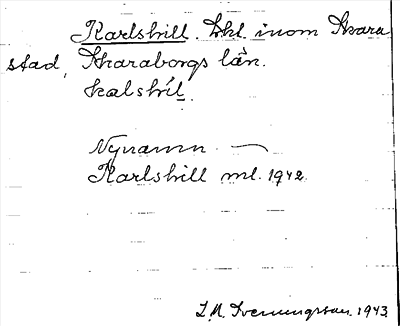 Karlshill. Lkl. inom Skara
stad, Skaraborgs län.
kalshíl.
Nynamn —
Karlshill ml. 1942.
S.M. Svenungsson. 1943